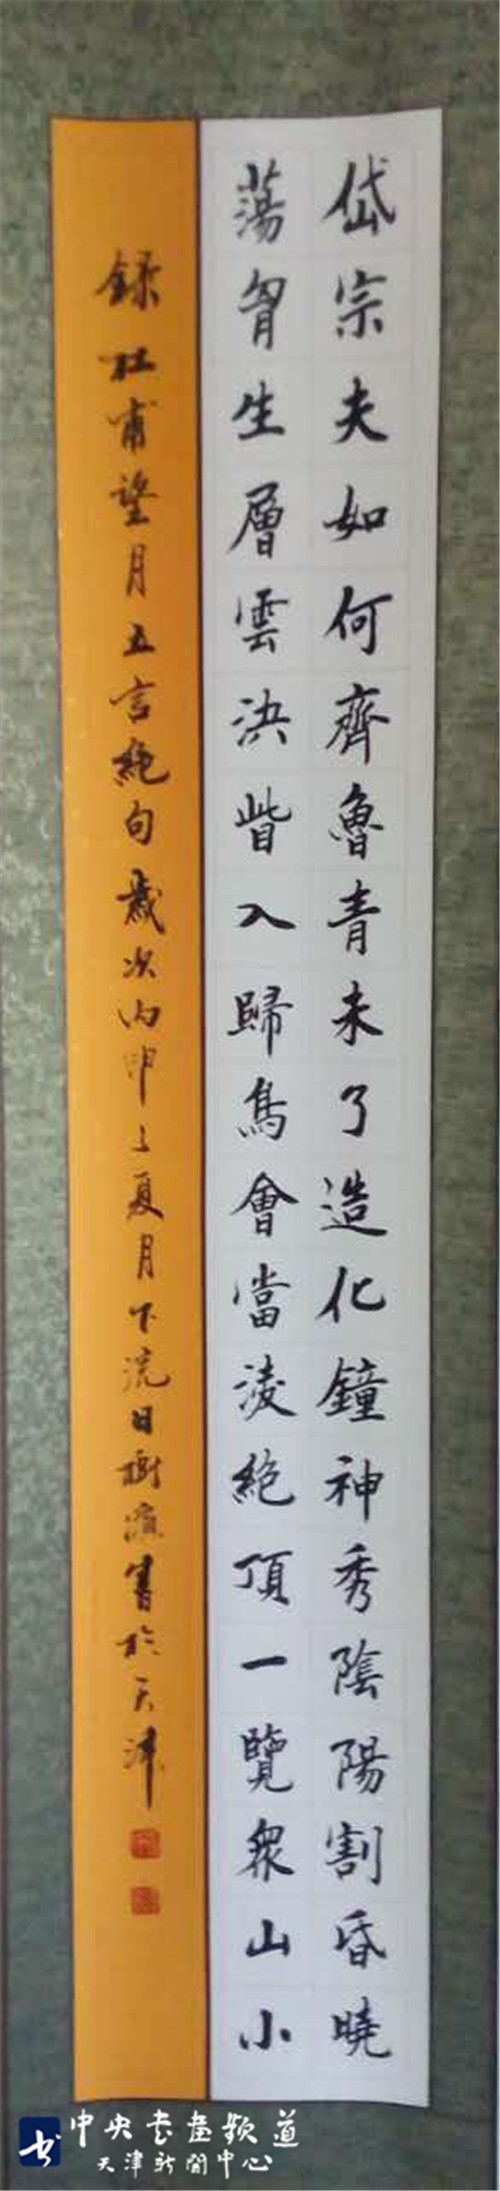 岱宗夫如何齊魯青未了造化鐘神秀陰陽割昏曉
蕩胷生層雲決眥入歸鳥會當淩絕頂一覽衆山小
錄杜甫望月五言絕句歲次丙申之夏月下浣日樹滨書於天津
中央书画频道
天津新闻中心